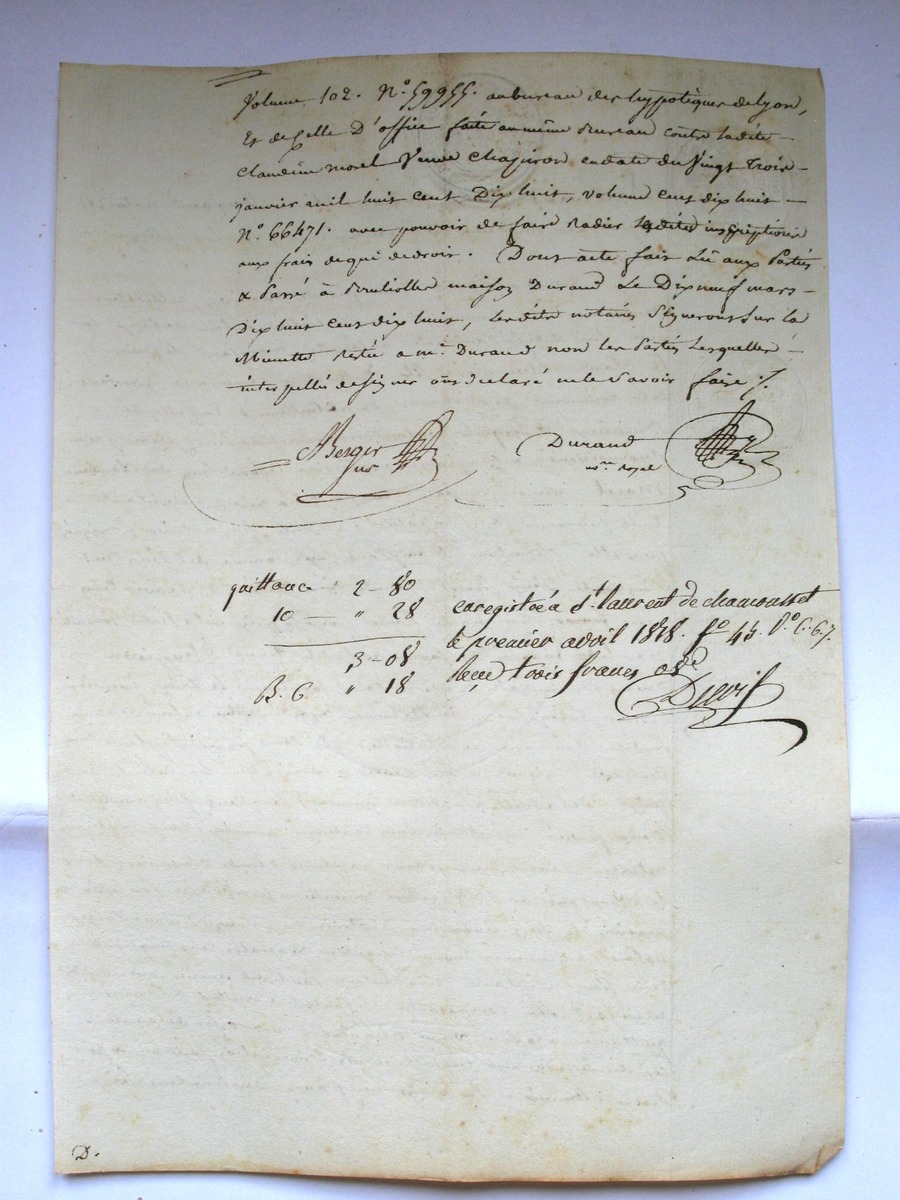 Volume 102. N° 59955. au bureau des hypotèques de Lyon,
Et de Celle D'office faite au même Bureau contre ladite
Claudine morel Veuve Chapiron en date du Vingt Trois
janvier mil huit cent Dix huit, volume cent dix huit
N° 66471. avec pouvoir de faire Radier lesdites inscriptions
aux frais de qui de droit. Dont acte fait Lu aux Parties
& Passé à maison Durand Le Dix neuf mars
Dix huit cent dix huit, Lesdits notaires Signeront Sur la
Minutte Restée a me. Durand non les Parties Lesquelles
interpellés de Signer ont declaré ne le Savoir faire ./.
Berger Durand
nre Royal
quittance 2-80
10 — " 28 enregistré a St. laurent de chamousset
le premier avril 1818. fo 45. Vo C. 6. 7.
3-08 Reçu trois francs 08
B. G " 18
D.